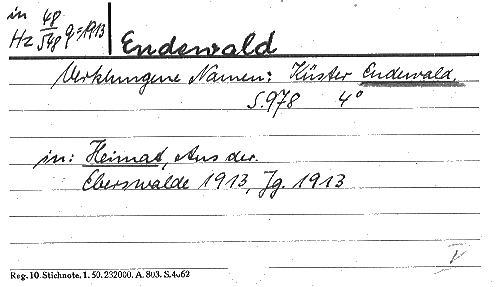 in
Hz 48/548 q = 1913
Endewald
Verklungene Namen: Küster Endewald.
S. 978 4°
in: Heimat, Aus der.
Eberswalde 1913, Jg. 1913
V
Reg. 10. Stichnote. 1. 50. 232000. A. 803. S. 4062